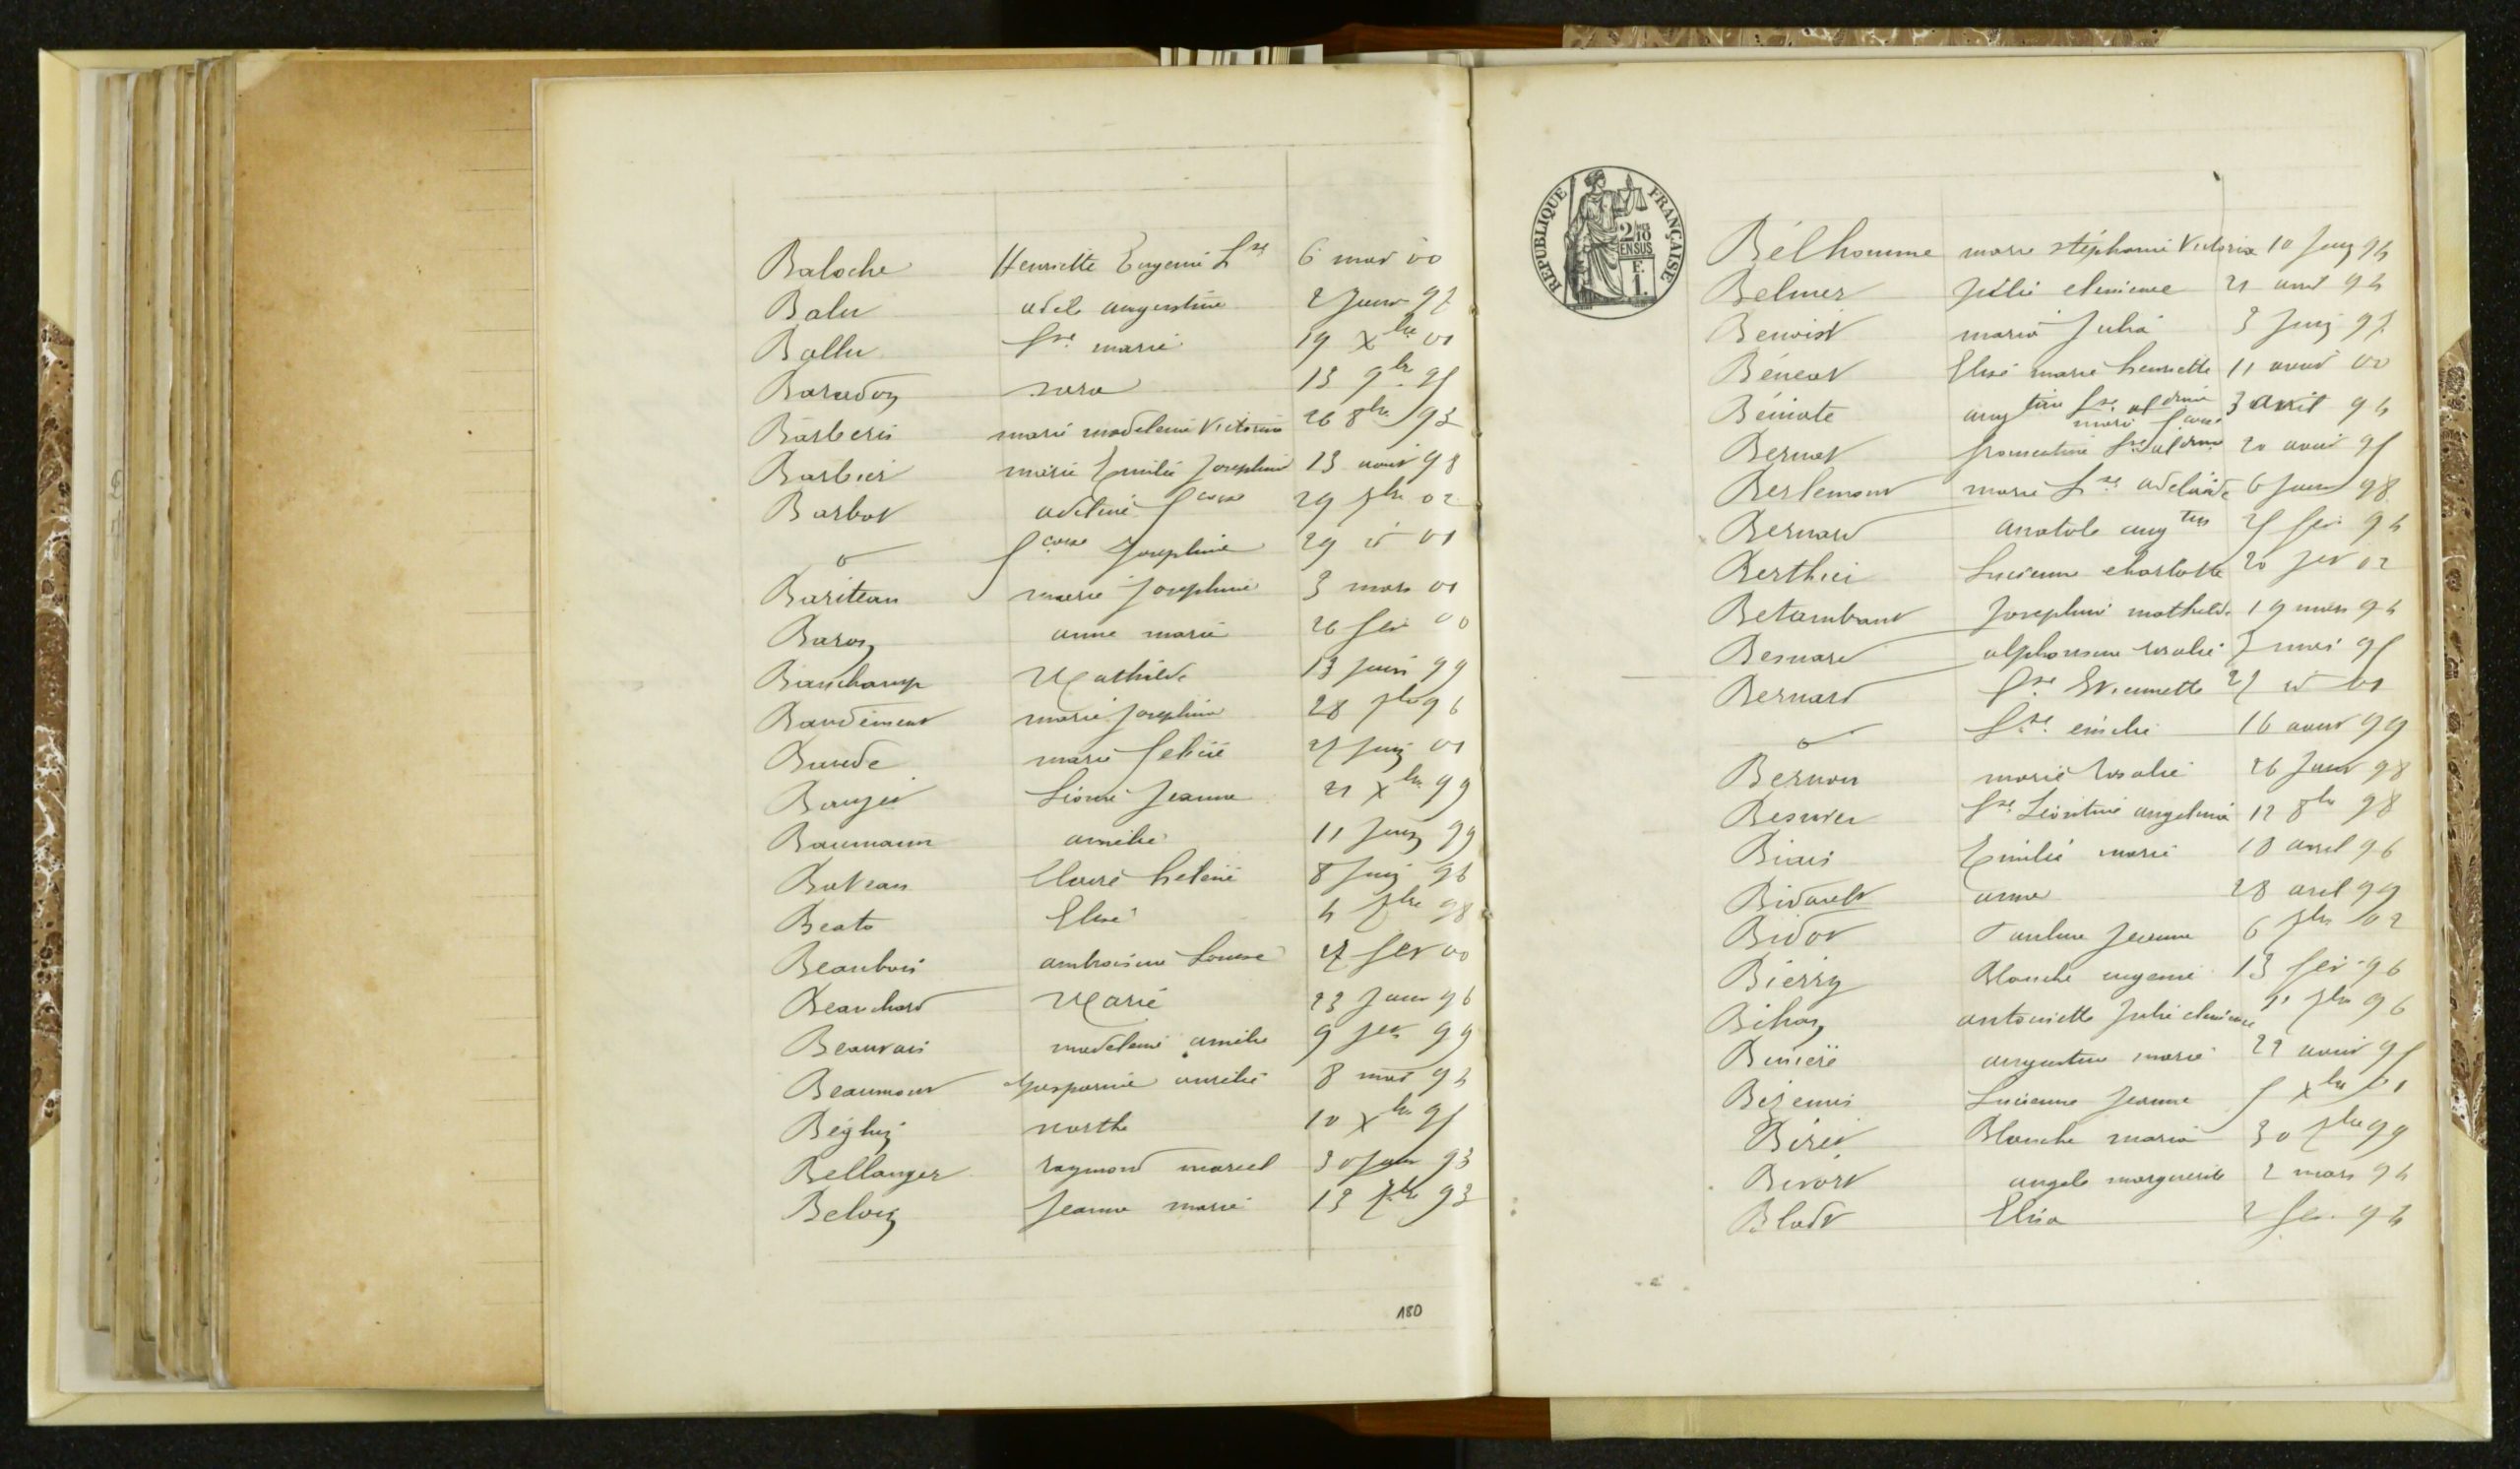 Baloche Henriette Eugenie Lse 6 mai 00
Balu adele augustine 2 Janv 97
Ballu fse marie 19 Xbre 01
Baradon sara 13 9bre 95
Barberis marie madeleine Victorine 26 8bre 93
Barbier marie Emilie Josephine 13 aout 98
Barbot adeline fcoise 29 7bre 02
d° fcoise Josephine 29 id 01
Bariteau marie Josephine 3 mars 01
Baron anne marie 26 fev 00
Bauchamp Mathilde 13 juin 99
Baudement marie Josephine 28 7bre 96
marie felicie 25 Juin 01
Bauger Léonie Jeanne 21 Xbre 99
Baumann amélie 11 Juin 99
Bateau Claire helene 8 Juin 96
Beato Elise 4 7bre 98
Beaubois ambroisine Louise 27 fev 00
Beauchard Marie 23 Janv 96
Beauvais madeleine amélie 9 fev 99
Beaumont Gasparine aurélie 8 mai 94
Béghin marthe 10 Xbre 95
Bellanger raymond marcel 30 Janv 93
Beloin Jeanne marie 13 7bre 93
180
REPUBLIQUE FRANÇAISE
2/10 EN SUS
F. 1.
Bélhomme marie stéphanie Victoria 10 Juin 94
Belmer Julie clemence 21 aout 94
Benoist maria Julia 3 Juin 97
Béneat Elise marie henriette 11 aout 00
Béniate augtine fse aldine 3 avril 94
marie fcoise
Bernat fromentine 20 aout 95
Berlemont marie Lse adelaide 6 Janv 98
Bernard anatole augtin 25 fev 94
Berthier Lucienne charlotte 20 fev 02
Betambant Josephine mathilde 19 mars 94
Besnard alphonsine rosalie 7 mai 95
Bernard fse Ernnette 27 id 01
d° fse emelie 16 aout 99
Bernon marie rosalie 26 Janv 98
Besnier fse Léontine angelina 12 8bre 98
Biais Emilie marie 10 avril 96
Bidault anna 28 avril 99
Bidot Pauline Jeanne 6 7bre 02
Bierry Blanche eugenie 13 fev 96
Bihan antoinette Julie clemence 21 7bre 96
Biniere augustine marie 22 aout 95
Bizemis Lucienne Jeanne 5 Xbre 01
Birée Blanche maria 30 7bre 99
Bivort angele marguerite 2 mars 94
Blodt Elisa 2 fev. 94